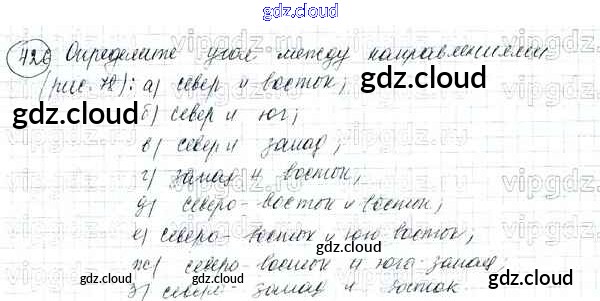 gdz.cloud
426 Определите угол между направлениями
(рис. 72): а) север и восток;
б) север и юг;
в) север и запад;
г) запад и восток;
д) северо-восток и восток;
е) северо-восток и юго-восток;
ж) северо-восток и юго-запад;
з) северо-запад и восток.
gdz.cloud
gdz.cloud
gdz.cloud
gdz.cloud
gdz.cloud
gdz.cloud
gdz.cloud
vipgdz.ru
vipgdz.ru
vipgdz.ru